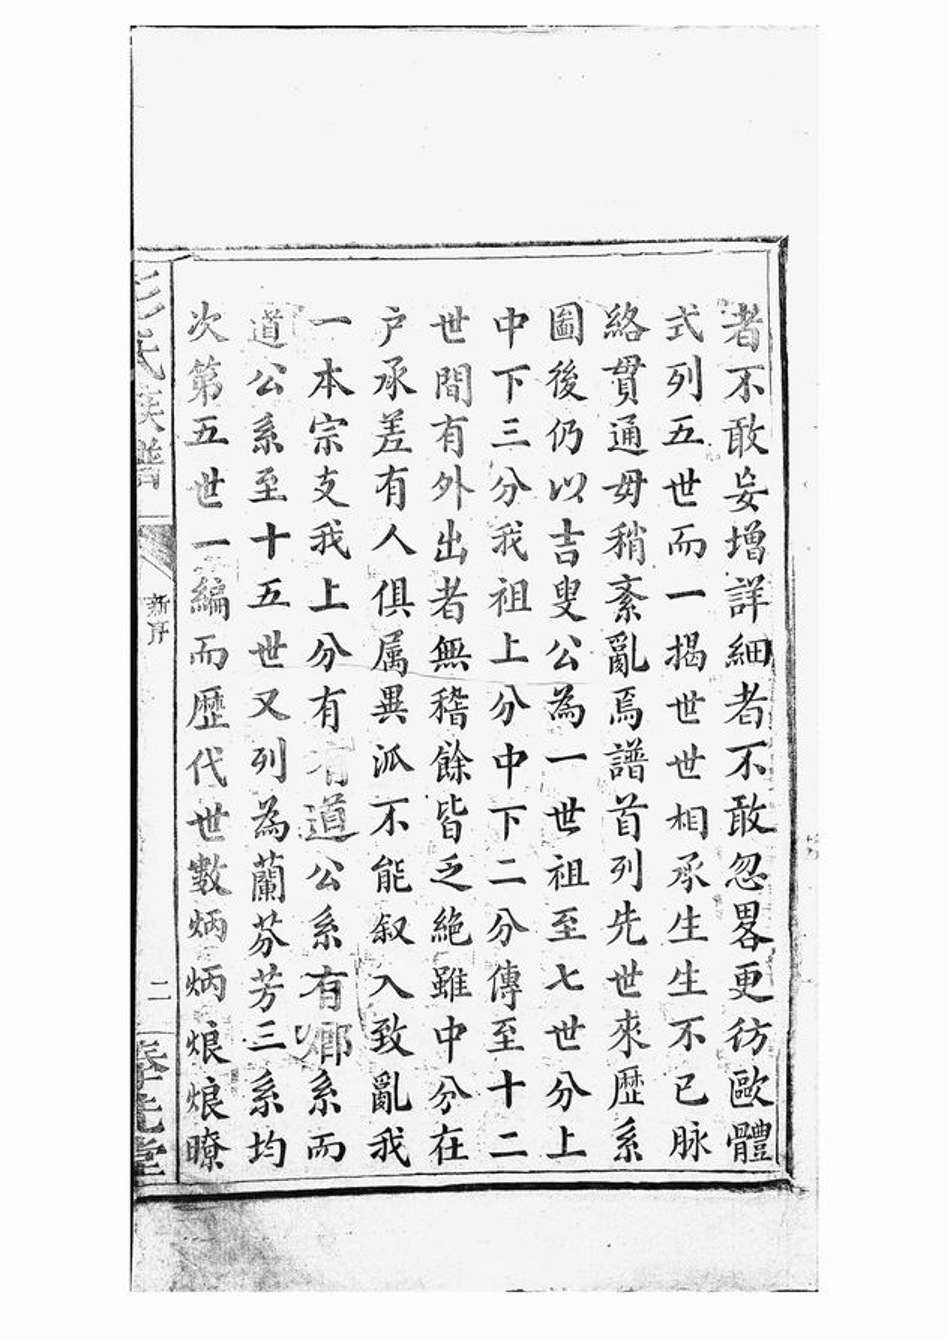 者不敢妄增詳細者不敢忽畧更彷歐體
式列五世而一揭世世相承生生不已脉
絡貫通毋稍紊亂焉譜首列先世來歷系
圖後仍以吉叟公為一世祖至七世分上
中下三分我祖上分中下二分傳至十二
世間有外出者無稽餘皆乏絶雖中分在
户承差有人俱属異派不能叙入致亂我
一本宗支我上分有有道公系有鄉系而
道公系至十五世又列為蘭芬芳三系均
次第五世一編而歷代世數炳炳烺烺瞭
彭氏族譜
新序
二
奉先堂